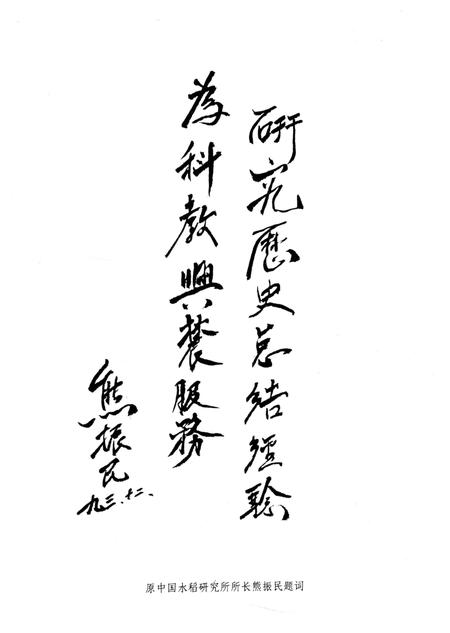 研究歷史总结經驗
为科教興農服務
熊振民
九三.十二.
原中国水稻研究所所长熊振民题词